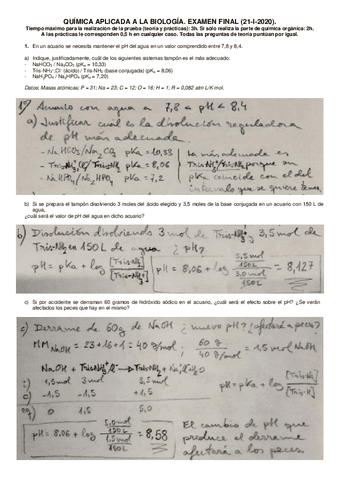 QUÍMICA APLICADA A LA BIOLOGÍA. EXAMEN FINAL (21-I-2020).
Tiempo máximo para la realización de la prueba (teoría y prácticas): 3h. Si sólo realiza la parte de química orgánica: 2h.
A las prácticas le corresponden 0,5 h en cualquier caso. Todas las preguntas de teoría puntúan por igual.
1. En un acuario se necesita mantener el pH del agua en un valor comprendido entre 7,8 y 8,4.
a) Indique, justificadamente, cuál de los siguientes sistemas tampón es el más adecuado:
- NaHCO₃ / Na₂CO₃ (pKₐ = 10,33)
- Tris-NH₃⁺,Cl⁻ (ácido) / Tris-NH₂ (base conjugada) (pKₐ = 8,06)
- NaH₂PO₄ / Na₂HPO₄ (pKₐ = 7,20)
Datos: Masas atómicas: P = 31; Na = 23; C = 12; O = 16; H = 1; R = 0,082 atm·L/K·mol.
1) Acuario con agua a 7,8 < pH < 8,4
a) Justificar cuál es la disolución reguladora
de pH más adecuada.
- NaHCO₃/Na₂CO₃ pKa = 10,33
- TrisNH₃⁺Cl⁻/TrisNH₂ pKa = 8,06
pKa = 7,2
La más adecuada es
porque su
pKa coincide con el del
intervalo que se quiere tener
b) Si se prepara el tampón disolviendo 3 moles del ácido elegido y 3,5 moles de la base conjugada en un acuario con 150 L de
agua,
¿cuál será el valor de pH del agua en dicho acuario?
b) Disolución disolviendo 3 mol de 3,5 mol de
Tris-NH₂ en 150 L de agua ¿pH?
pH = pKa + log [Tris-NH₂]
pH = 8,06 + log 3,5mol/150L / 3,0mol/150L = 8,127
c) Si por accidente se derraman 60 gramos de hidróxido sódico en el acuario, ¿cuál será el efecto sobre el pH? ¿Se verán
afectados los peces que hay en el mismo?
c) Derrame de 60g de NaOH ¿nuevo pH? ¿afectará a peces?
MM NaOH = 23+16+1 = 40 g/mol; 60 g / 40 g/mol = 1,5 mol NaOH
1,5mol 3mol 3,5mol
pH = pKa + log
-1,5 -1,5 +1,5
0 1,5 5,0
pH = 8,06 + log 5,0mol/150L / 1,5mol/150L = 8,58
El cambio de pH que
produce el derrame
afectará a los peces.